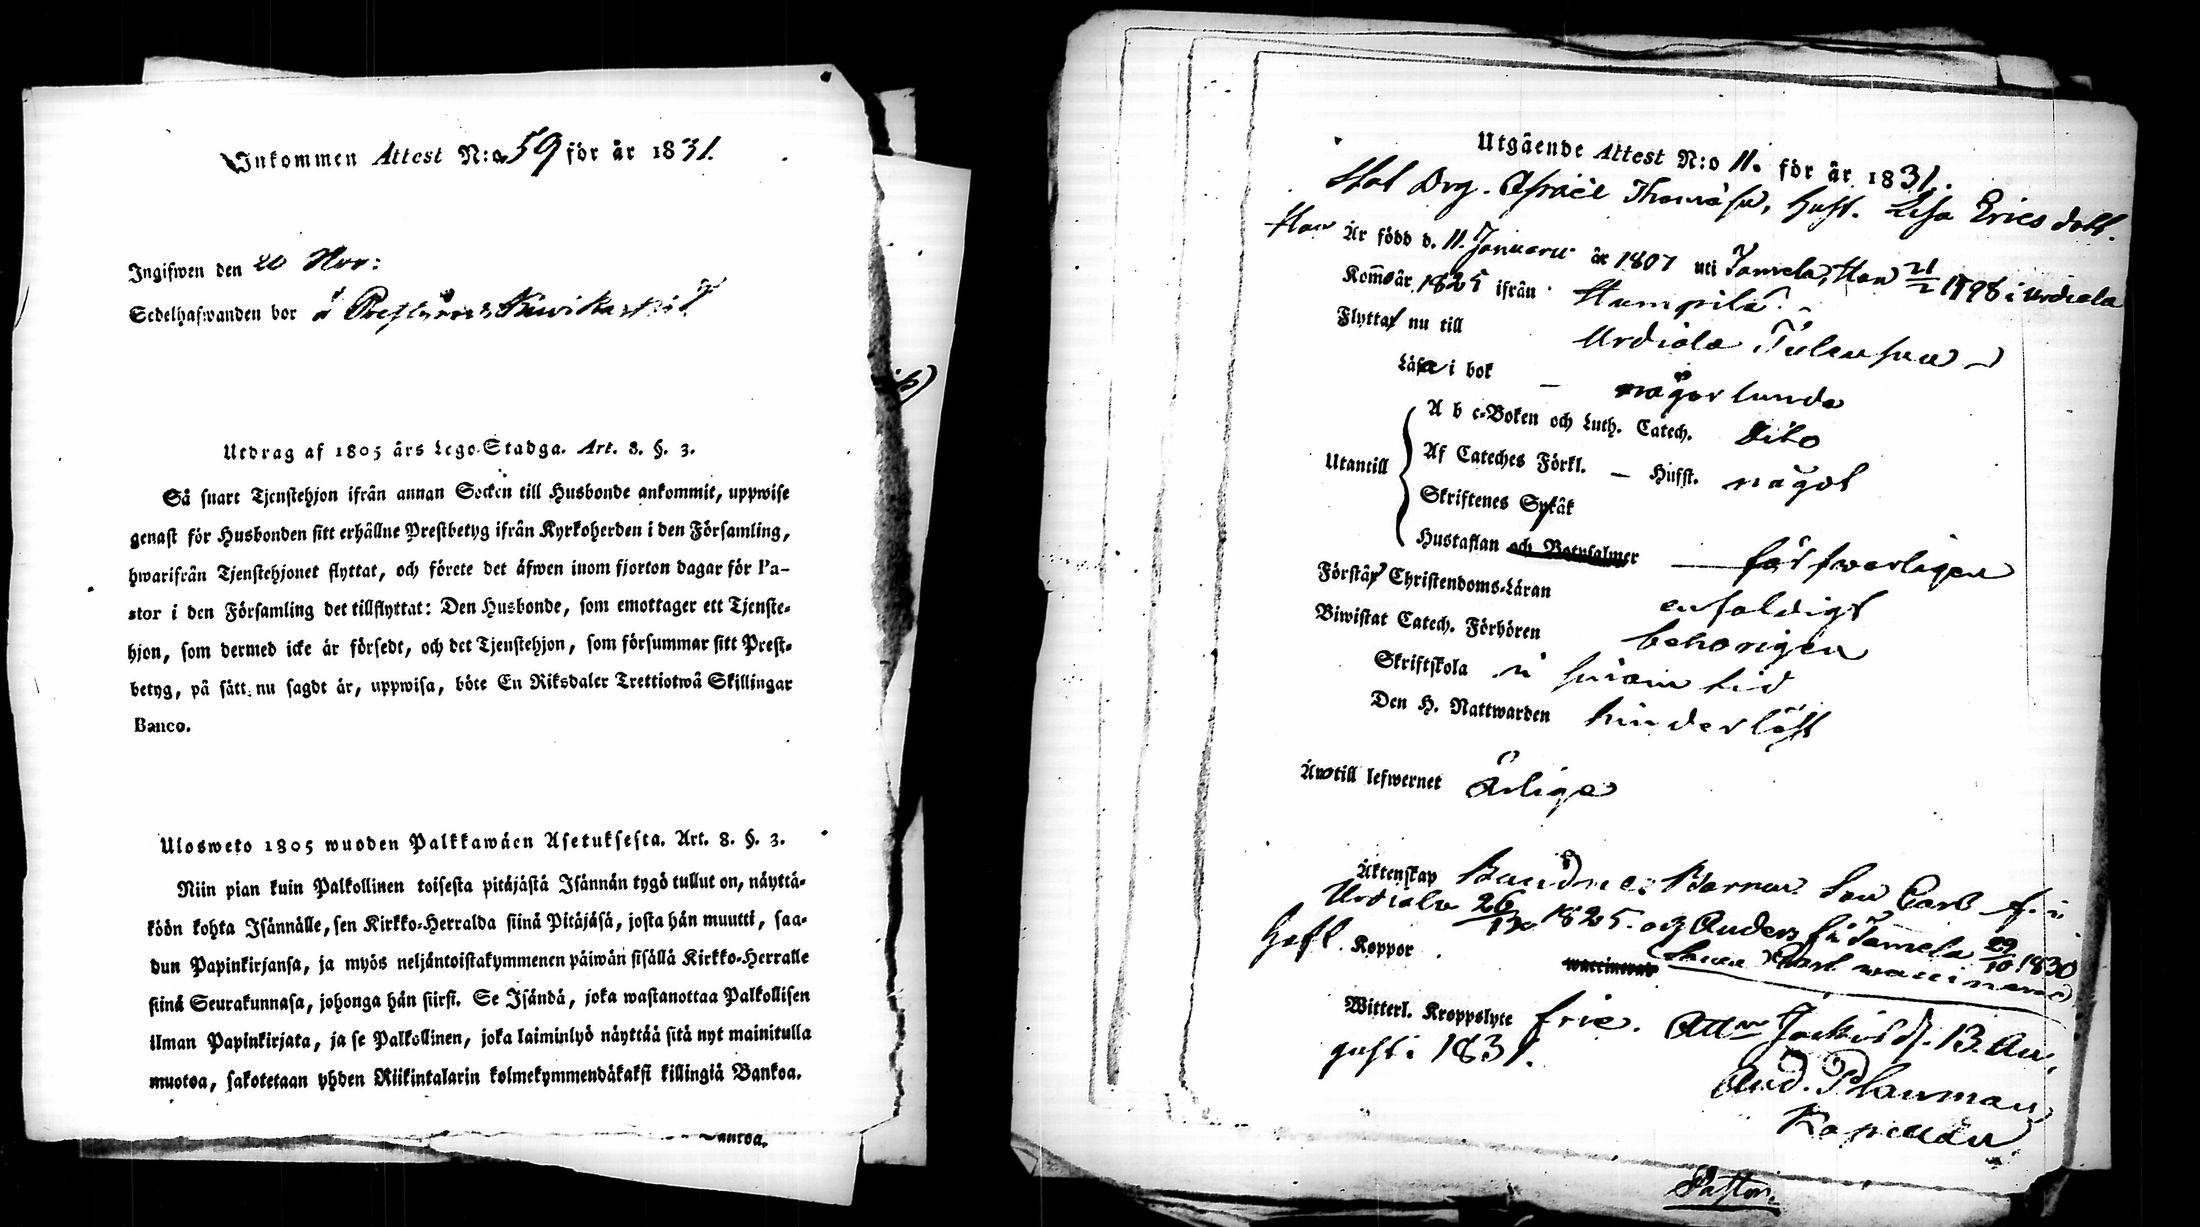 Inkommen Attest N:o 59 för år 1831.
Ingifwen den 20 Nov:
Sedelhafwanden bor å
Utdrag af 1805 års Lego-Stadga. Art. 8. §. 3.
Så snart Tjenstehjon ifrån annan Socken till Husbonde ankommit, uppwise
genast för Husbonden sitt erhållne Prestbetyg ifrån Kyrkoherden i den Församling,
hwarifrån Tjenstehjonet flyttat, och förete det äfwen inom fjorton dagar för Pa-
stor i den Församling det tillflyttat: Den Husbonde, som emottager ett Tjenste-
hjon, som dermed icke är försedt, och det Tjenstehjon, som försummar sitt Prest-
betyg, på sätt nu sagdt är, uppwisa, böte En Riksdaler Trettiotwå Skillingar
Banco.
Ulosweto 1805 wuoden Palkkawäen Asetuksesta. Art. 8. §. 3.
Niin pian kuin Palkollinen toisesta pitäjästä Isännän tygö tullut on, näyttä-
köön kohta Isännälle, sen Kirkko-Herralda siinä Pitäjäsä, josta hän muutti, saa-
dun Papinkirjansa, ja myös neljäntoistakymmenen päiwän sisällä Kirkko-Herralle
siinä Seurakunnasa, johonga hän siirsi. Se Isändä, joka wastanottaa Palkollisen
ilman Papinkirjata, ja se Palkollinen, joka laiminlyö näyttää sitä nyt mainitulla
muotoa, sakotetaan yhden Riikintalarin kolmekymmendäkaksi killingiä Bankoa.
Utgående Attest N:o 11. för år 1831.
Drg. Thomass, Hust. Lisa Ericsdott.
Han Är född d. 11. Januarii år 1807 uti Tamela, Hon 21/2 1798 i Urdiala
Komsår 1825 ifrån Humpila
Flytta nu till Urdiala
Läsa i bok — någorlunda
Utantill
A b c-Boken och Luth. Catech. dito
Af Cateches Förkl. — Hufst. något
Skriftenes Språk
Hustaflan och Botpsalmer — försvarligen
Förstå Christendoms-Läran enfaldigt
Biwistat Catech. Förhören behörigen
Skriftskola i sinom tid
Den H. Nattwarden hinderlöst
Äro till lefwernet Ärlige
Äktenskap Bundne: Barnen Son Carl f. i
Urdiala 26/12 1825. och Anders f. i Tamela 29/10 1830
Koppor haft waccinerad
Witterl. Kroppslyte frie. 13. Au-
gusti 1831.
And. Plauman
Kapellan
Pastor.